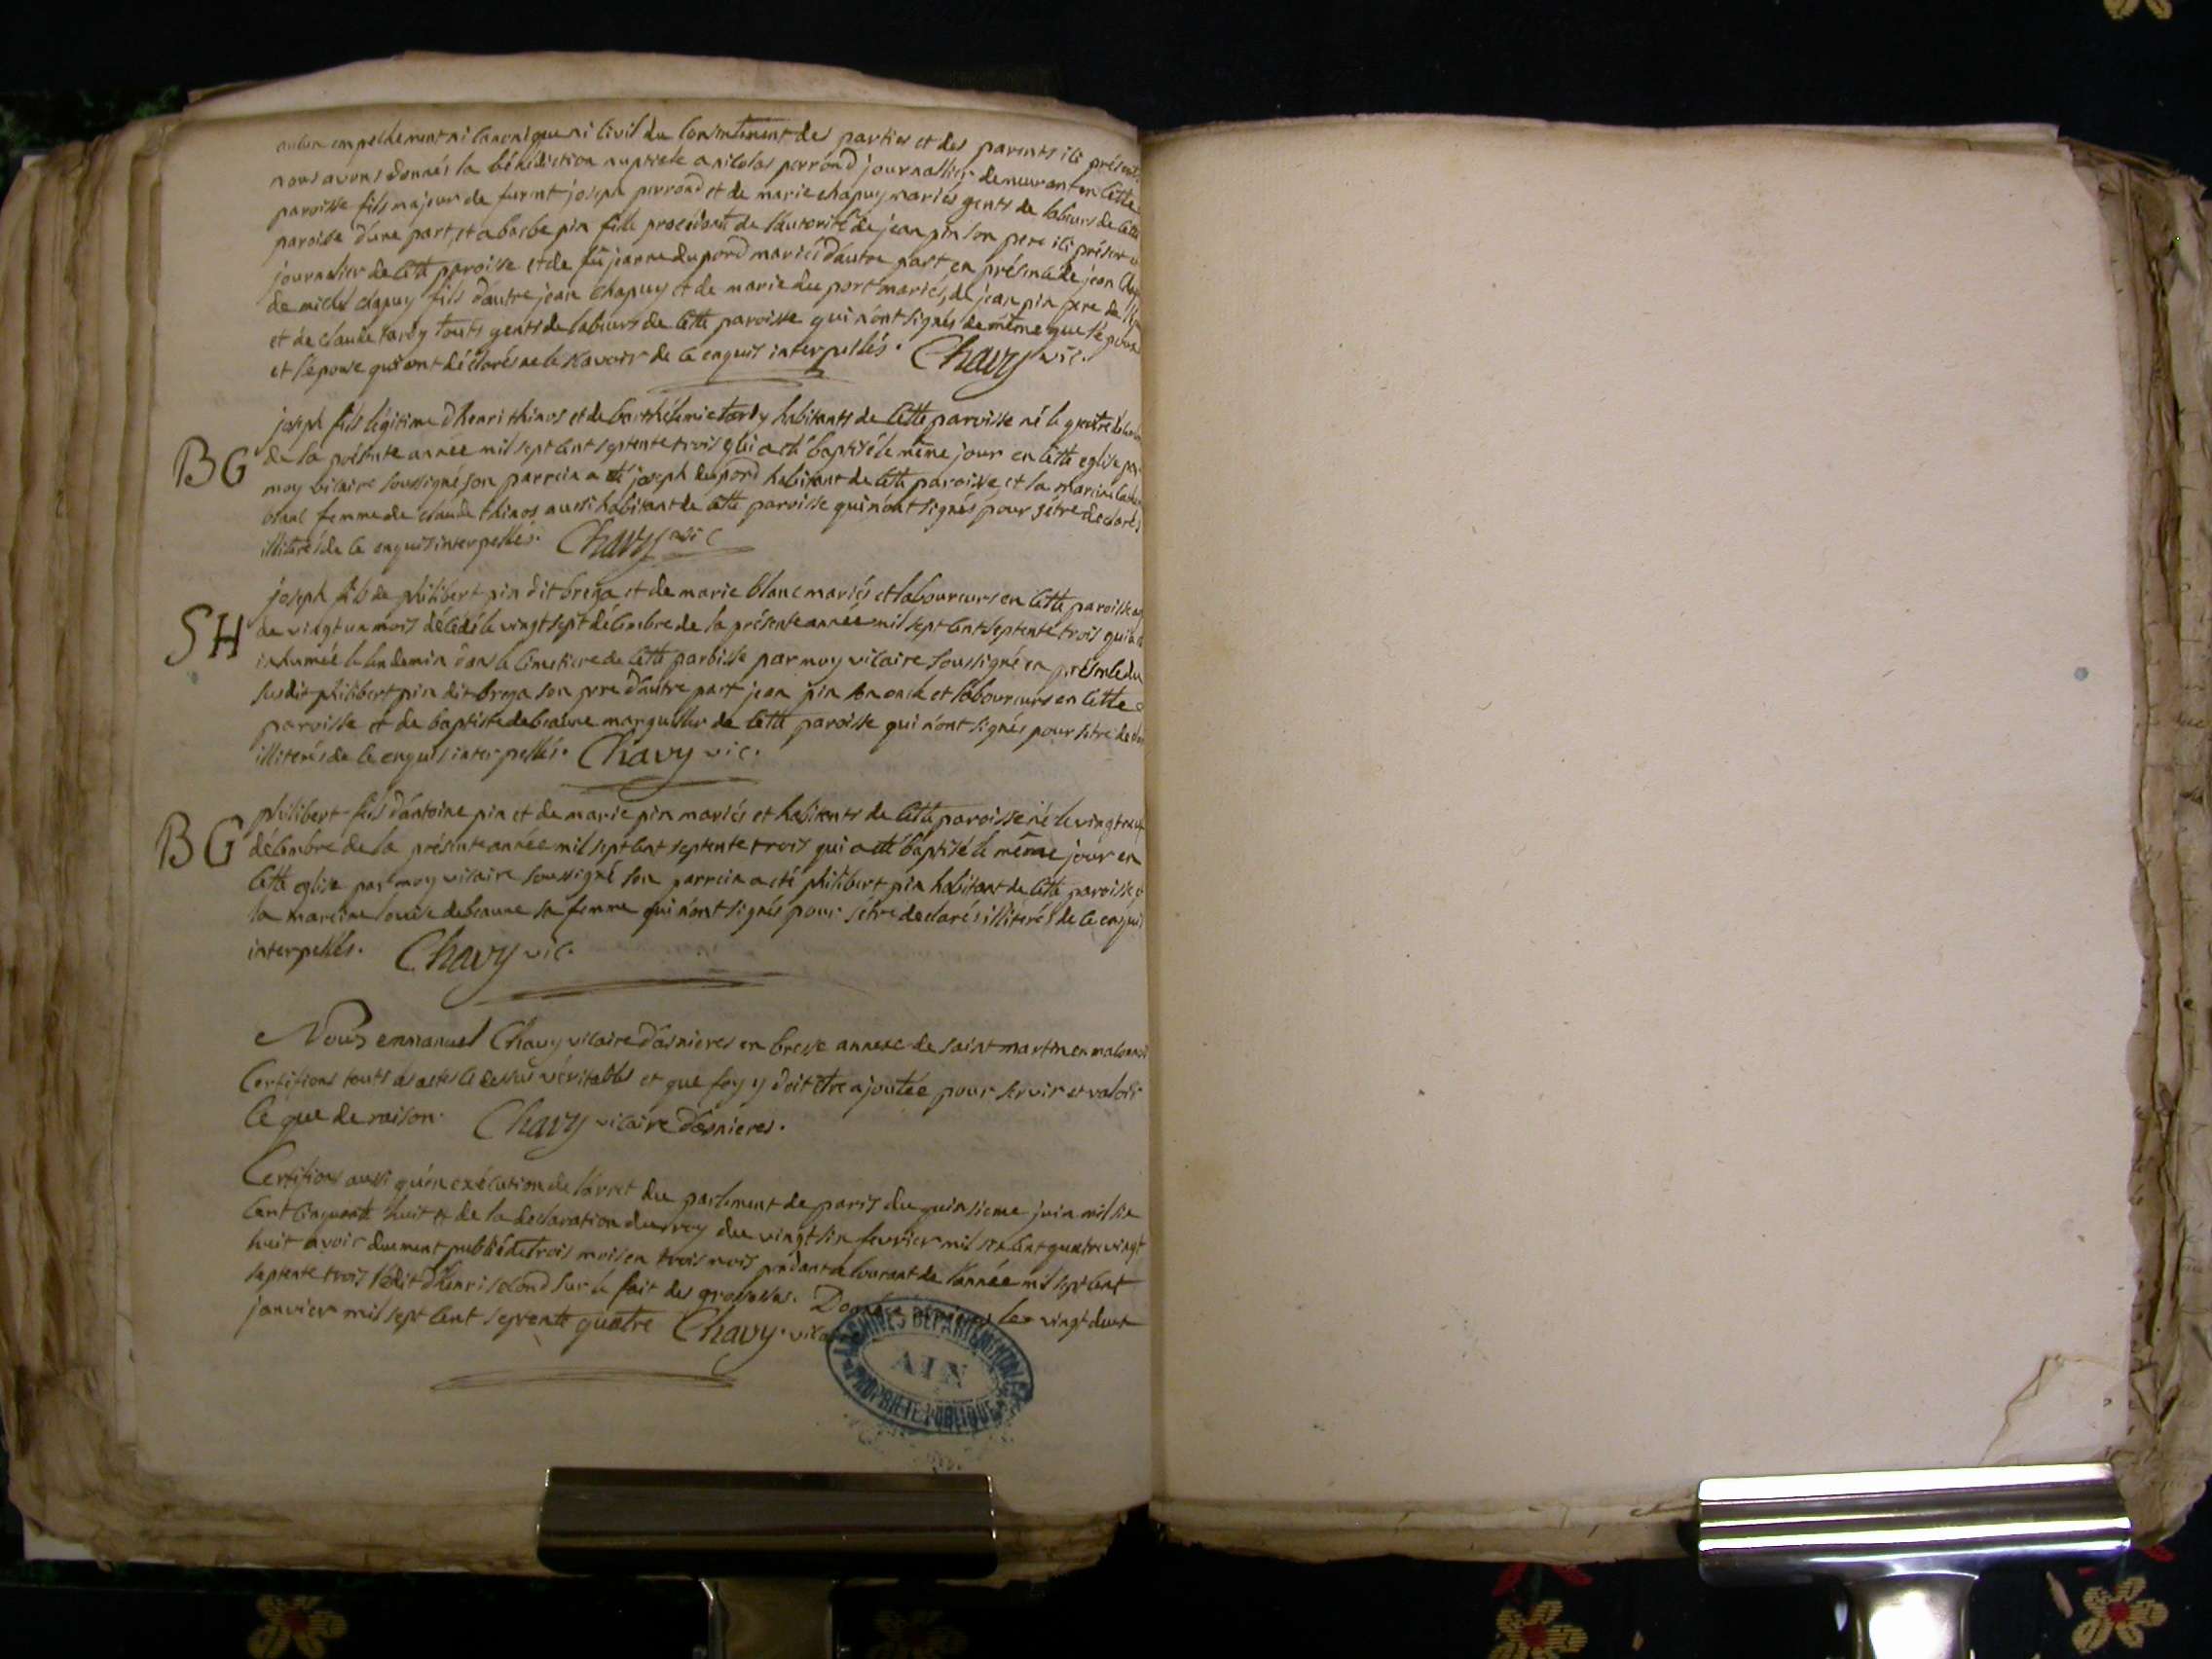 aucun empechement ni canonique ni civil du consentement des parties et des parents ici présents
nous avons donnés la bénédiction nuptiale a nicolas perrond journallier demeurant en cette
paroisse fils majeur de furent joseph perrond et de marie chapuy mariés gents de labeurs de cette
paroisse d'une part, et a barbe pin fille procédant de l'autorité de jean pin son pere ici présent
journalier de cette paroisse et de fue jeanne du pord mariés d'autre part en présence de jean
de michel chapuy fils d'autre jean chapuy et de marie du port mariés, de jean pin pere de
et de claude tardy touts gents de labeurs de cette paroisse qui n'ont signés de même que l'époux
et l'épouse qui ont déclarés ne le scavoir de ce enquis interpellés. Chavy vic.
joseph fils légitime d'henri thinos et de barthélemie tardy habitants de cette paroisse né le quatre
BG de la présente année mil sept cent septente trois qui a été baptisé le même jour en cette eglise par
moy vicaire soussigné son parrein a été joseph du pord habitant de cette paroisse et la mareine
blanc femme de claude thinos aussi habitant de cette paroisse qui n'ont signés pour s'être déclarés
illiterés de ce enquis interpellés. Chavy vic
joseph fils de philibert pin dit brega et de marie blanc mariés et laboureurs en cette paroisse
SH de vingt un mois décédé le vingt sept décembre de la présente année mil sept cent septente trois qui a
inhumée le lendemin dans le cimetiere de cette paroisse par moy vicaire soussigné en présence du
susdit philibert pin dit brega son pere d'autre part jean pin son oncle et laboureurs en cette
paroisse et de baptiste debeaune marguillier de cette paroisse qui n'ont signés pour s'etre
illiterés de ce enquis interpellés. Chavy vic.
philibert fils d'antoine pin et de marie pin mariés et habitants de cette paroisse né le vingt neuf
BG décembre de la présente année mil sept cent septente trois qui a été baptisé le même jour en
cette eglise par moy vicaire soussigné son parrein a été philibert pin habitant de cette paroisse
la mareine louise debeaune sa femme qui n'ont signés pour s'être declarés illiterés de ce enquis
interpellés. Chavy vic.
Nous emmanuel Chavy vicaire d'asnieres en bresse annexe de saint martin en
Certifions touts les actes ci dessus véritables et que foy y doit être ajoutée pour servir et valoir
ce que de raison. Chavy vicaire d'asnieres.
Certifions aussi qu'en exécution de l'arret du parlement de paris du quinsieme juin mil six
cent cinquante huit et de la declaration du roy du vingt six fevrier mil sept cent quatre vingt
huit avoir duement publié de trois mois en trois mois pendant le courant de l'année mil sept cent
septente trois l'édit d'henri second sur le fait des grossesses. le vingt deux
janvier mil sept cent septente quatre Chavy
ARCHIVES DEPARTEMENTALES
AIN
PROPRIETE PUBLIQUE